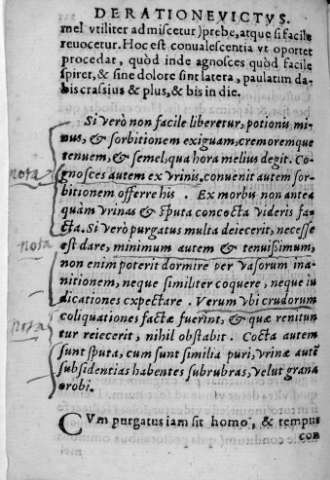 DE RATIONE VICTVS.
mel vtiliter admiscetur) prębe, atque si facile
reuocetur. Hoc est conualescentia vt oportet
procedat, quòd inde agnosces quòd facile
spiret, & sine dolore sint latera, paulatim da-
bis crassius & plus, & bis in die.
Si verò non facile liberetur, potionis mi-
nus, & sorbitionem exiguam, cremoremque
tenuem, & semel, qua hora melius degit. Co-
nota
gnosces autem ex vrinis. conuenit autem sor-
bitionem offerre his. Ex morbis non antea
quàm vrinas & sputa concocta videris fa-
cta. Si verò purgatus multa deiecerit, necesse
nota
est dare, minimum autem & tenuissimum,
non enim poterit dormire per vasorum ina-
nitionem, neque similiter coquere, neque iu
dicationes expectare. Verum vbi crudorum
coliquationes factæ fuerint, & quæ renitun
nota
tur reiecerit, nihil obstabit. Cocta autem
sunt sputa, cum sunt similia puri, vrinæ autẽ
subsidentias habentes subrubras, velut grana
orobi.
CVm purgatus iam sit homo, & tempus
con